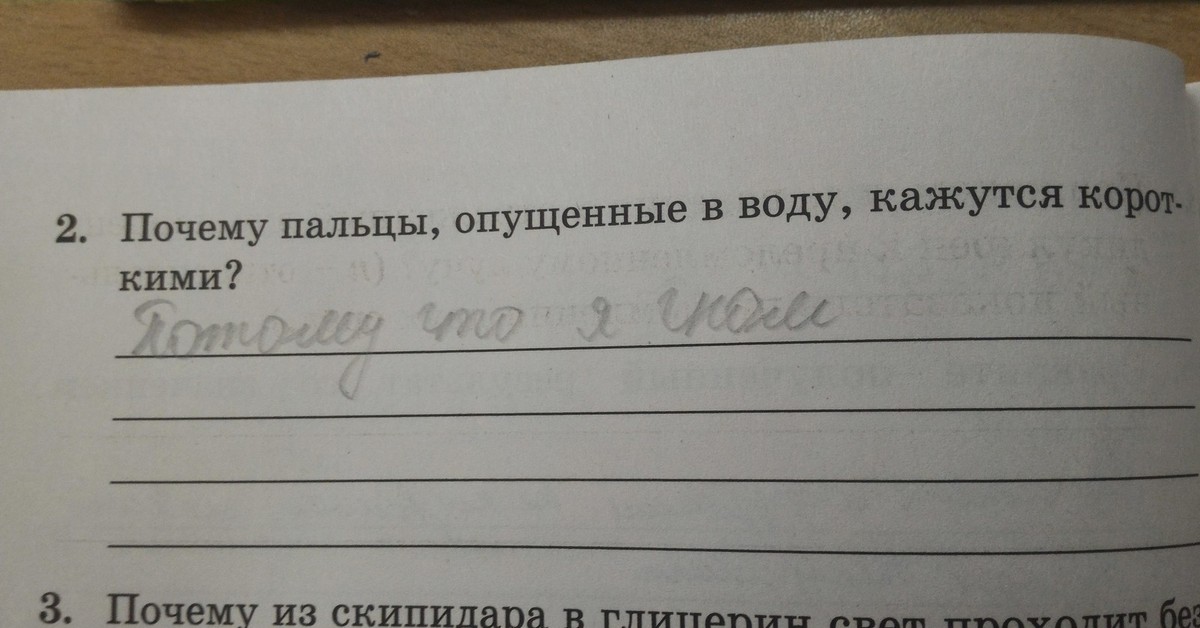 2. Почему пальцы, опущенные в воду, кажутся корот-
кими?
Потому что я гном
3. Почему из скипидара в глицерин свет проходит без